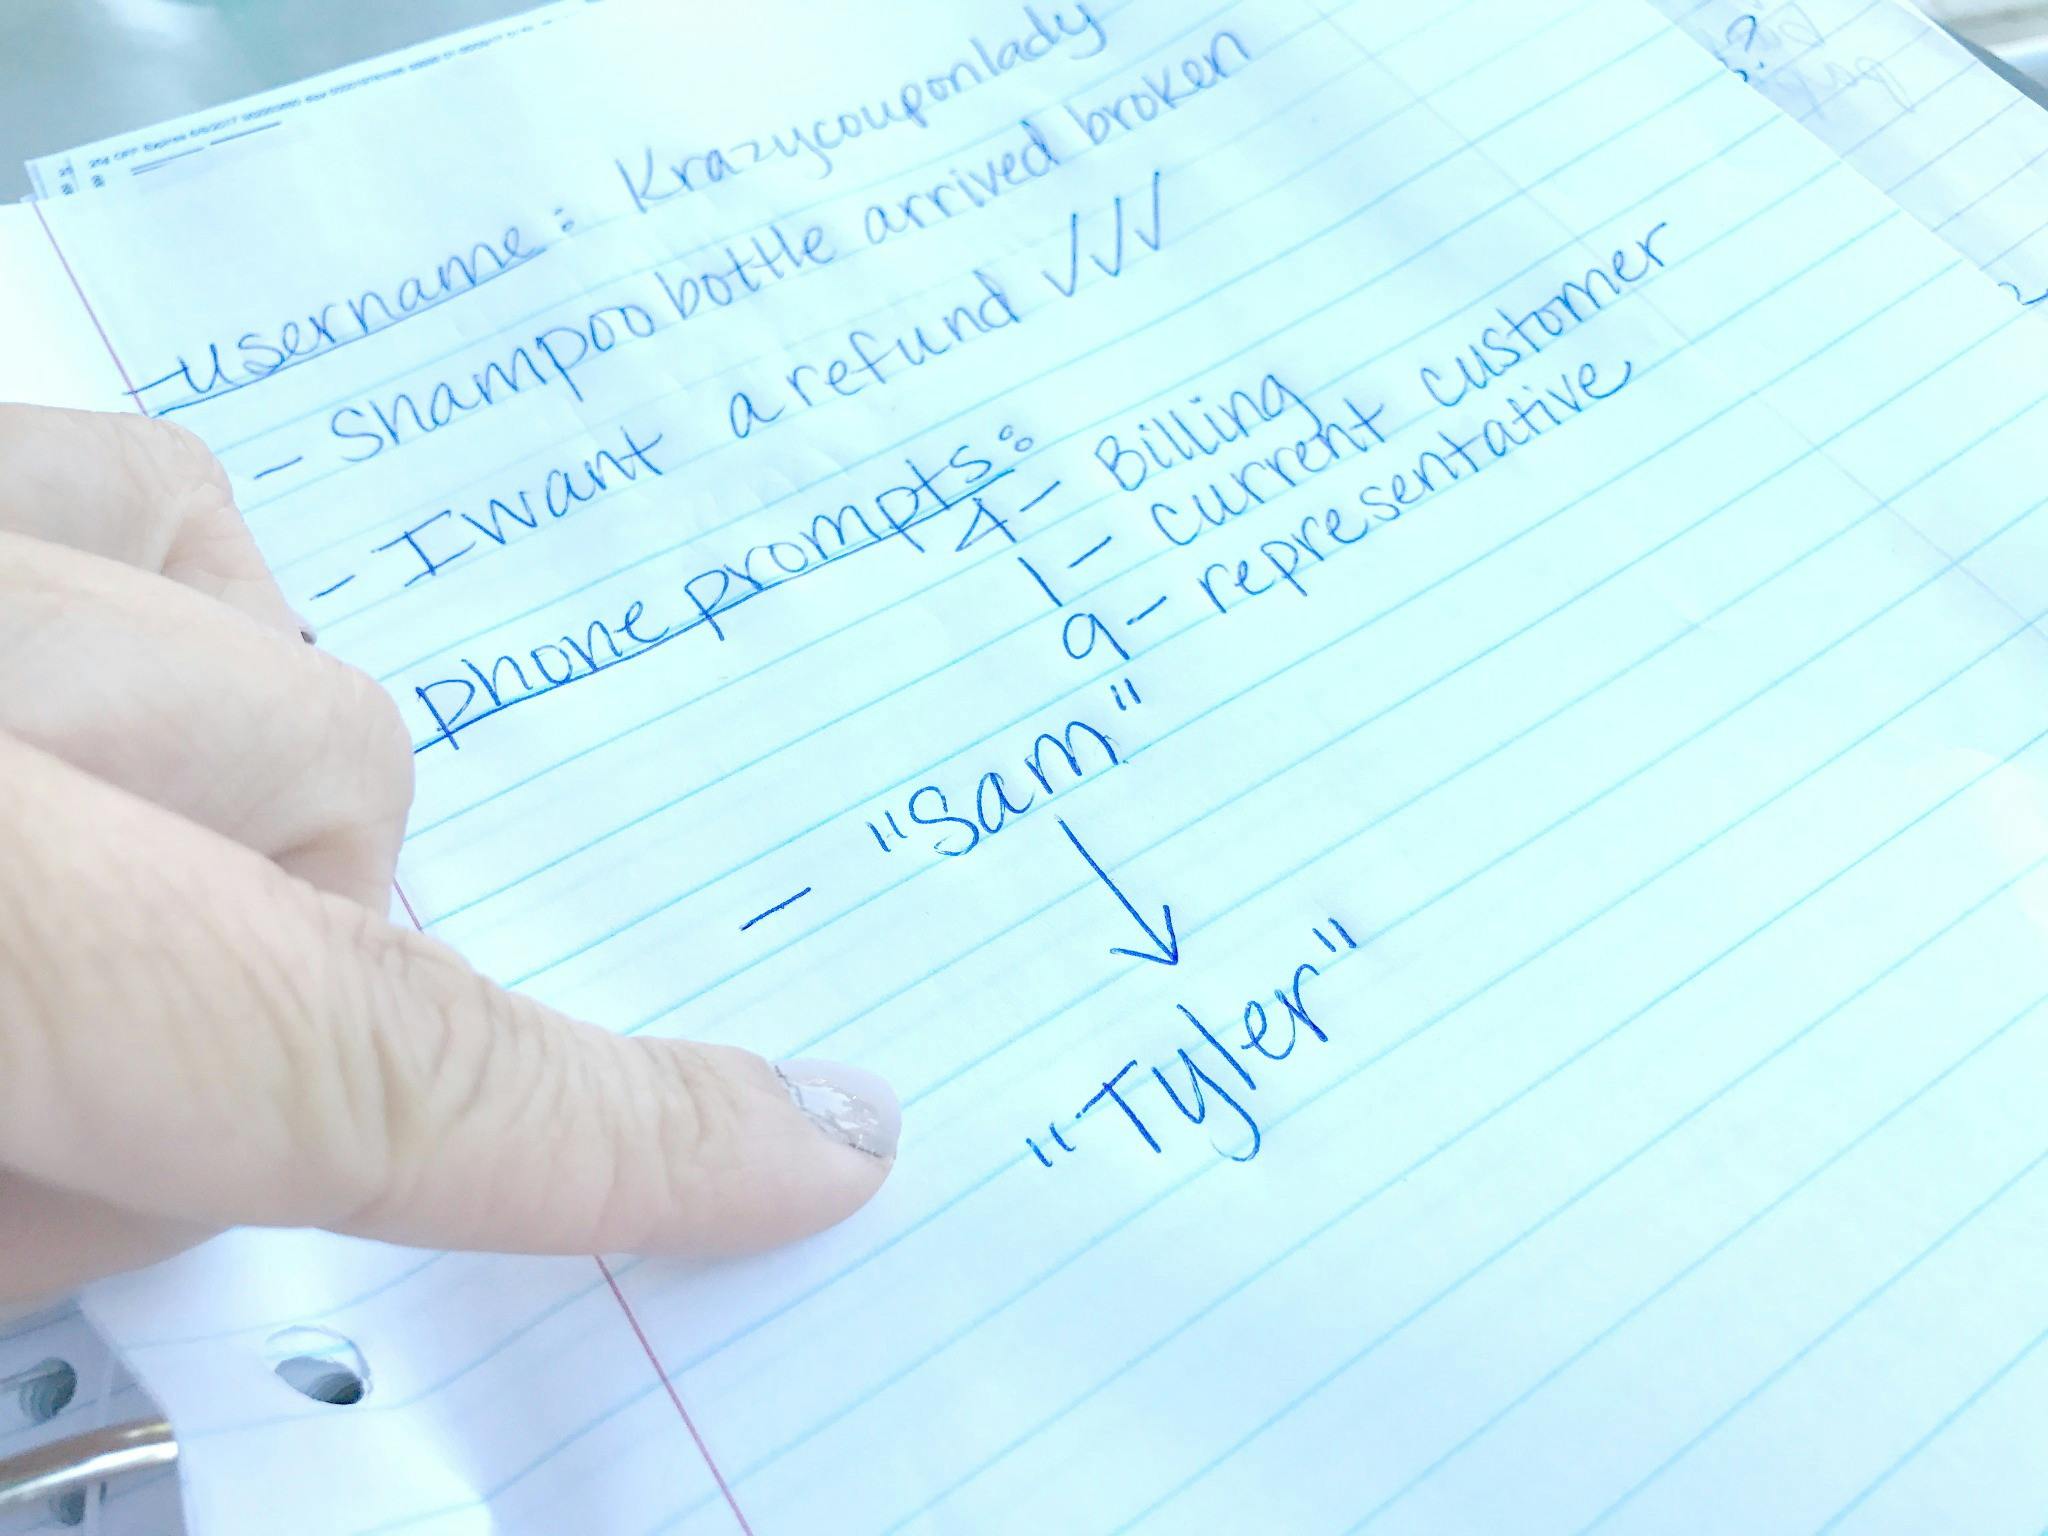 20¢ OFF Expires 6/8/2017
- username: Krazycouponlady
- Shampoo bottle arrived broken
- I want a refund ✓✓✓
phone prompts:
4 - Billing
1 - current customer
9 - representative
- "Sam"
↓
"Tyler"
?